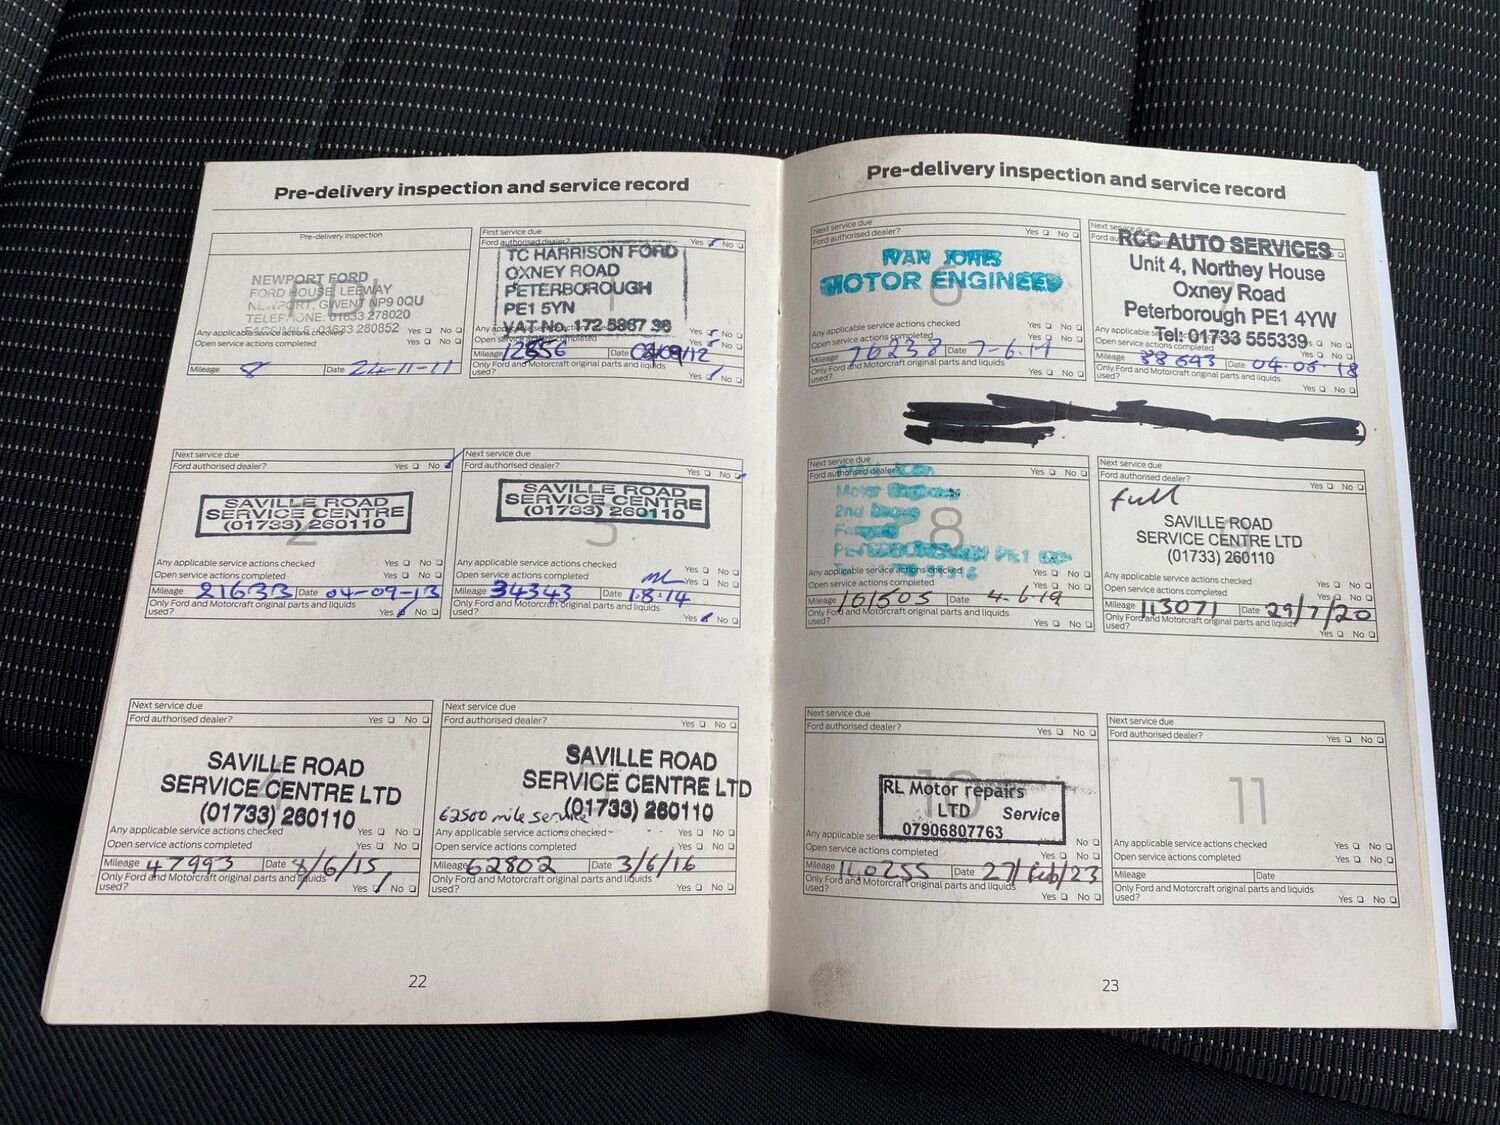 Pre-delivery inspection and service record
Pre-delivery inspection
NEWPORT FORD
FORD HOUSE, LEEWAY
NEWPORT, GWENT NP9 0QU
TELEPHONE: 01633 278020
FACSIMILE: 01633 280852
Any applicable service actions checked Yes No
Open service actions completed Yes No
Mileage 8 Date 24-11-11
First service due
Ford authorised dealer? Yes No
TC HARRISON FORD
OXNEY ROAD
PETERBOROUGH
PE1 5YN
VAT No. 172 5867 36
1
Any applicable service actions checked Yes No
Open service actions completed Yes No
Mileage 12656 Date /09/12
Only Ford and Motorcraft original parts and liquids
used? Yes No
Next service due
Ford authorised dealer? Yes No
SAVILLE ROAD
SERVICE CENTRE
(01733) 260110
2
Any applicable service actions checked Yes No
Open service actions completed Yes No
Mileage 21633 Date 04-09-13
Only Ford and Motorcraft original parts and liquids
used? Yes No
Next service due
Ford authorised dealer? Yes No
SAVILLE ROAD
SERVICE CENTRE
(01733) 260110
3
Any applicable service actions checked Yes No
Open service actions completed Yes No
Mileage 34343 Date 1.8.14
Only Ford and Motorcraft original parts and liquids
used? Yes No
Next service due
Ford authorised dealer? Yes No
SAVILLE ROAD
SERVICE CENTRE LTD
(01733) 260110
4
Any applicable service actions checked Yes No
Open service actions completed Yes No
Mileage 47993 Date 8/6/15
Only Ford and Motorcraft original parts and liquids
used? Yes No
Next service due
Ford authorised dealer? Yes No
SAVILLE ROAD
SERVICE CENTRE LTD
(01733) 260110
62500 mile service
Any applicable service actions checked Yes No
Open service actions completed Yes No
Mileage 62802 Date 3/6/16
Only Ford and Motorcraft original parts and liquids
used? Yes No
22
Pre-delivery inspection and service record
Next service due
Ford authorised dealer? Yes No
IVAN JONES
MOTOR ENGINEER
6
Any applicable service actions checked Yes No
Open service actions completed Yes No
Mileage 76238 Date 7-6-17
Only Ford and Motorcraft original parts and liquids
used? Yes No
RCC AUTO SERVICES
Unit 4, Northey House
Oxney Road
Peterborough PE1 4YW
Tel: 01733 555339
7
Any applicable service actions checked Yes No
Open service actions completed Yes No
Mileage 88693 Date 04.06.18
Only Ford and Motorcraft original parts and liquids
used? Yes No
Next service due
Ford authorised dealer? Yes No
Motor Engineer
2nd Drove
PETERBOROUGH PE1
8
Any applicable service actions checked Yes No
Open service actions completed Yes No
Mileage 101505 Date 4.6.19
Only Ford and Motorcraft original parts and liquids
used? Yes No
Next service due
Ford authorised dealer? Yes No
full
SAVILLE ROAD
SERVICE CENTRE LTD
(01733) 260110
9
Any applicable service actions checked Yes No
Open service actions completed Yes No
Mileage 113071 Date 29/7/20
Only Ford and Motorcraft original parts and liquids
used? Yes No
Next service due
Ford authorised dealer? Yes No
10
RL Motor repairs
LTD Service
07906807763
Any applicable service No
Open service actions completed Yes No
Mileage 140255 Date 27/Feb/23
Only Ford and Motorcraft original parts and liquids
used? Yes No
Next service due
Ford authorised dealer? Yes No
11
Any applicable service actions checked Yes No
Open service actions completed Yes No
Mileage Date
Only Ford and Motorcraft original parts and liquids
used? Yes No
23